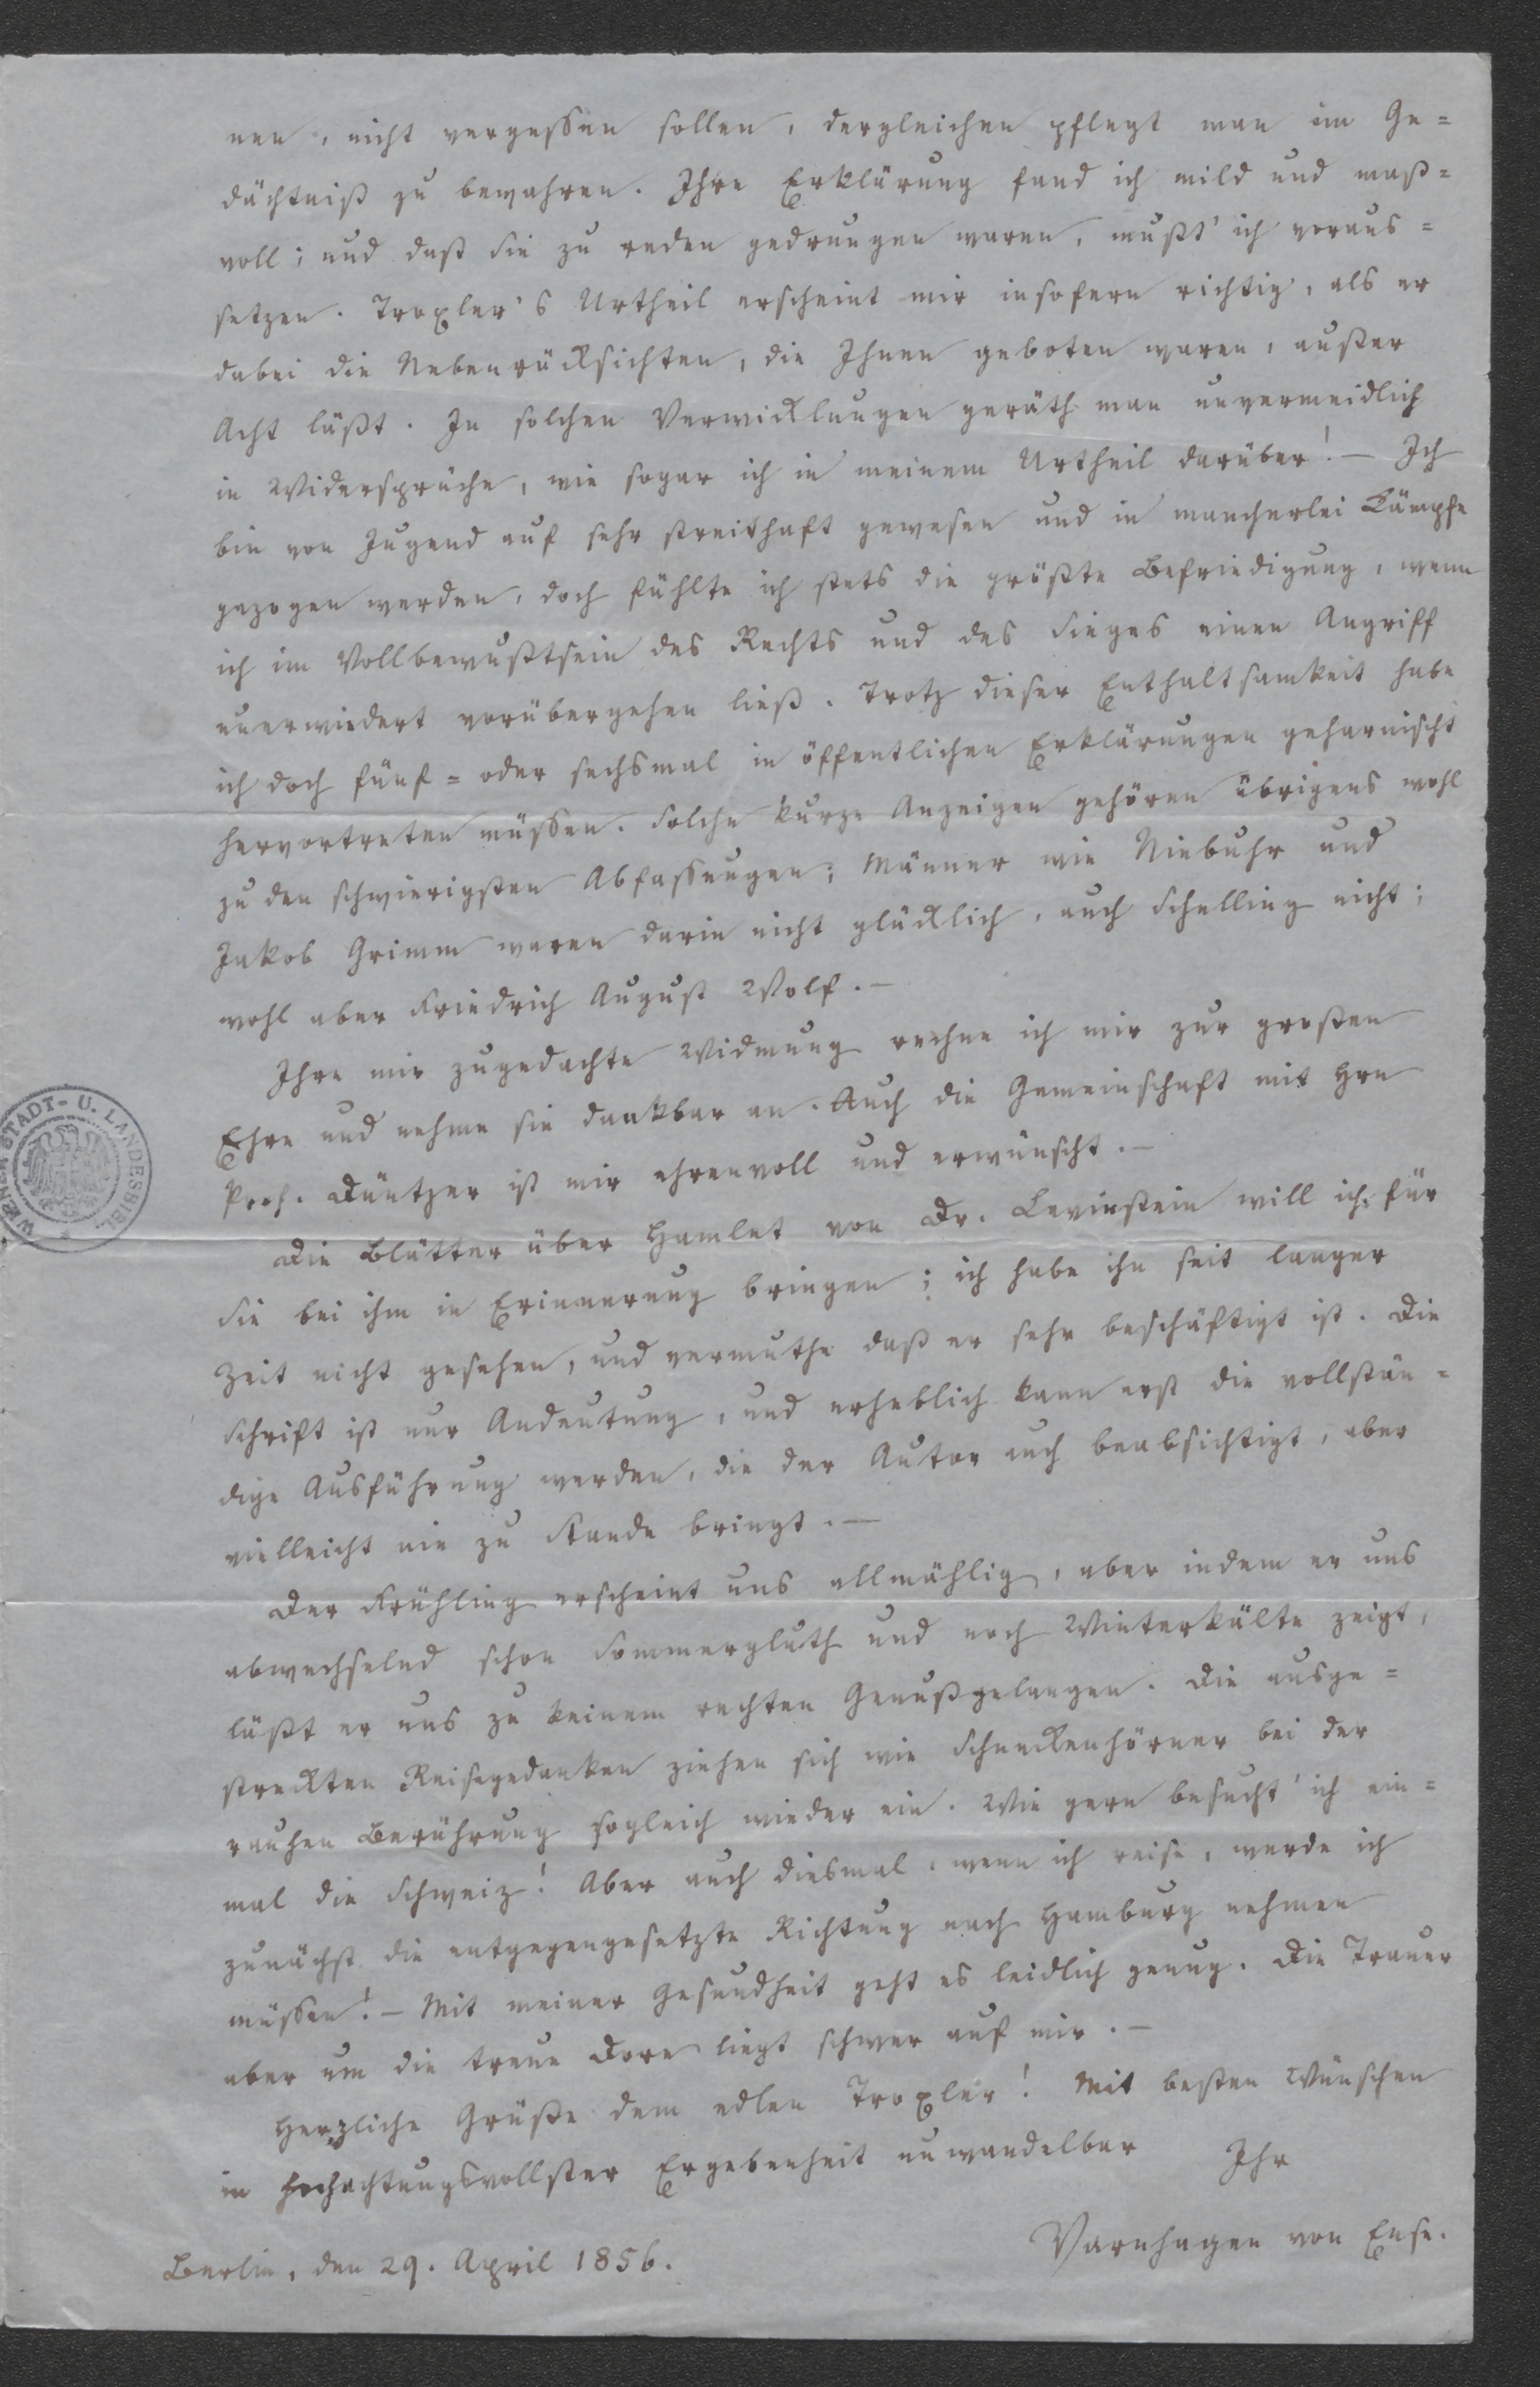 nen, nicht vergessen sollen, dergleichen pflegt man im Ge=
dächtniß zu bewahren. Ihre Erklärung fand ich mild und maß=
voll; und daß Sie zu reden gedrungen waren, mußt' ich voraus=
setzen. Troxler's Urtheil erscheint mir insofern richtig, als er
dabei die Nebenrücksichten, die Ihnen geboten waren, außer
Acht läßt. In solchen Verwicklungen geräth man unvermeidlich
in Widersprüche, wie sogar ich in meinem Urtheil darüber! — Ich
bin von Jugend auf sehr streithaft gewesen und in mancherlei Kämpfe
gezogen worden, doch fühlte ich stets die größte Befriedigung, wenn
ich im Vollbewußtsein des Rechts und des Sieges einen Angriff
unerwiedert vorübergehen ließ. Trotz dieser Enthaltsamkeit habe
ich doch fünf= oder sechsmal in öffentlichen Erklärungen geharnischt
hervortreten müssen. Solche kurze Anzeigen gehören übrigens wohl
zu den schwierigsten Abfassungen; Männer wie Niebuhr und
Jakob Grimm waren darin nicht glücklich, auch Schelling nicht;
wohl aber Friedrich August Wolf. —
Ihre mir zugedachte Widmung rechne ich mir zur großen
Ehre und nehme sie dankbar an. Auch die Gemeinschaft mit Hrn
Prof. Düntzer ist mir ehrenvoll und erwünscht. —
Die Blätter über Hamlet von Dr. Levinstein will ich für
Sie bei ihm in Erinnerung bringen; ich habe ihn seit langer
Zeit nicht gesehen, und vermuthe daß er sehr beschäftigt ist. Die
Schrift ist nur Andeutung, und erheblich kann erst die vollstän=
dige Ausführung werden, die der Autor auch beabsichtigt, aber
vielleicht nie zu Stande bringt. —
Der Frühling erscheint uns allmählig, aber indem er uns
abwechselnd schon Sommergluth und noch Winterkälte zeigt,
läßt er uns zu keinem rechten Genuß gelangen. Die ausge=
streckten Reisegedanken ziehen sich wie Schneckenhörner bei der
rauhen Berührung sogleich wieder ein. Wie gern besucht' ich ein=
mal die Schweiz! Aber auch diesmal, wenn ich reise, werde ich
zunächst die entgegengesetzte Richtung nach Hamburg nehmen
müssen! — Mit meiner Gesundheit geht es leidlich genug. Die Trauer
aber um die treue Dore liegt schwer auf mir. —
Herzliche Grüße dem edlen Troxler! Mit besten Wünschen
in hochachtungsvollster Ergebenheit unwandelbar Ihr
Varnhagen von Ense.
Berlin, den 29. April 1856.
WIENER STADT- U. LANDESBIBL.